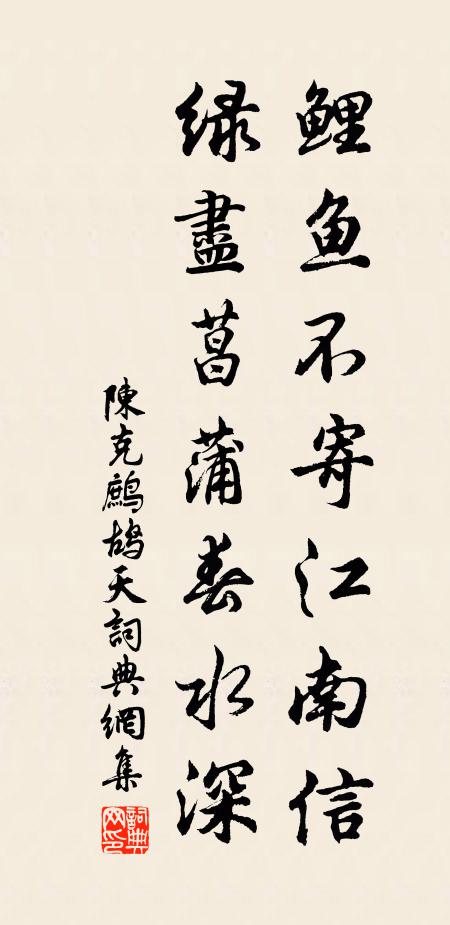 鯉魚不寄江南信
緑盡菖蒲春水深
陳克鷓鴣天詞典網集
詞典網印